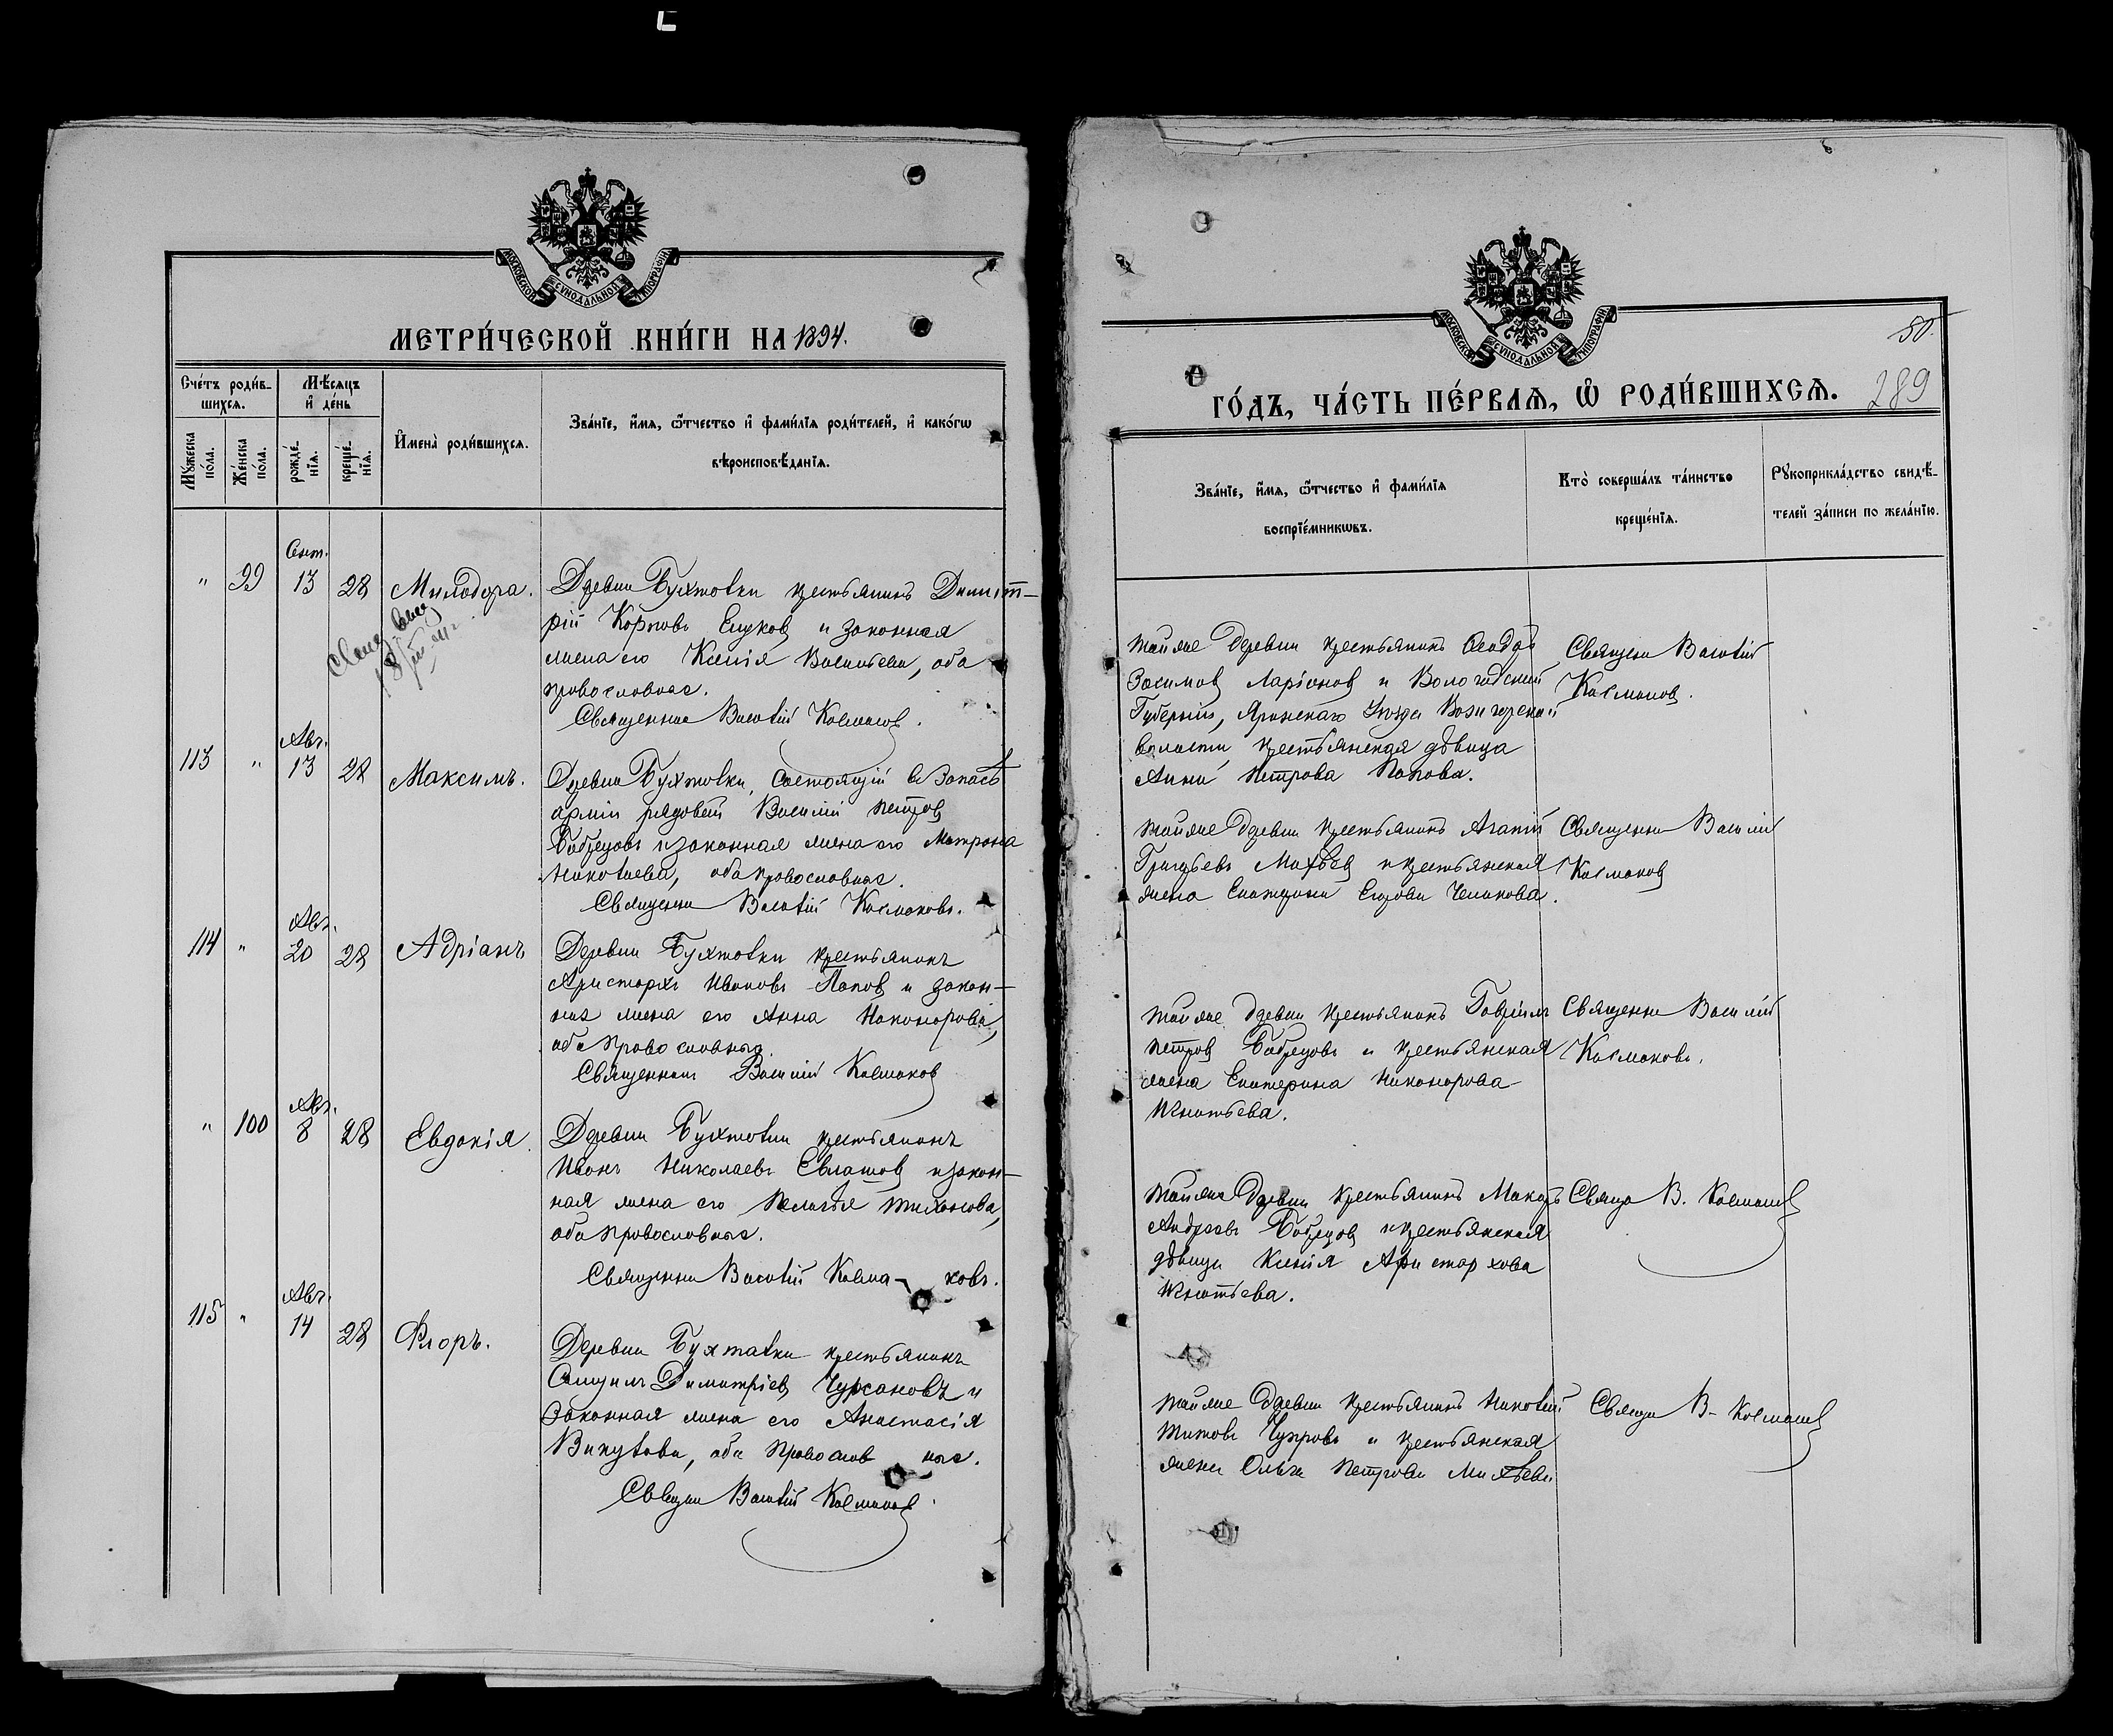 МОСКОВСКОЙ СѴНОДАЛЬНОЙ ТИПОГРАФІИ
МЕТРИ́ЧЕСКОЙ КНИ́ГИ НА 1894.
Сче́тъ роди́в-
шихсѧ.
Мѣ́сѧцъ
и҆ де́нь
Мꙋ́жеска
по́ла.
Же́нска
по́ла.
рожде́-
нїѧ.
креще́-
нїѧ.
И҆мена̀ роди́вшихсѧ.
Зва́нїе, и҆́мѧ, ѻ҆́тчество и҆ фами́лїѧ роди́телей, и҆ како́гѡ
вѣроисповѣ́данїѧ.
" 99 Сент. 13 28 Милодора.
Деревни Бухтовки крестьянинъ Димит-
рій Карповъ и законная
жена его Ксенія Васильева, оба
православные.
Священникъ Василій Колмаковъ.
113 " Авг. 13 28 Максимъ.
Деревни Бухтовки, состоящій въ запасѣ
арміи рядовой Василій Петровъ
Бобрецовъ и законная жена его Матрона
Николаева, оба православные.
Священникъ Василій Колмаковъ.
114 " Авг. 20 28 Адріанъ
Деревни Бухтовки крестьянинъ
Аристархъ Ивановъ Поповъ и закон-
ная жена его Анна Никонорова,
оба православные.
Священникъ Василій Колмаковъ
" 100 Авг. 8 28 Евдокія.
Деревни Бухтовки крестьянинъ
Иванъ Николаевъ и закон-
ная жена его Пелагія Тихонова,
оба православные.
Священникъ Василій Колма- ковъ.
115 " Авг. 14 28 Флоръ.
Деревни Бухтовки крестьянинъ
Самуилъ Димитріевъ и
законная жена его Анастасія
Викулова, оба православ ные.
Священ Василій Колмаковъ.
МОСКОВСКОЙ СѴНОДАЛЬНОЙ ТИПОГРАФІИ
50.
ГО́ДЪ, ЧА́СТЬ ПЕ́РВАѦ, Ѡ҆ РОДИ́ВШИХСѦ. 289
Зва́нїе, и҆́мѧ, ѻ҆́тчество и҆ фами́лїѧ
воспрїе́мникѡвъ.
Кто̀ соверша́лъ та́инство
креще́нїѧ.
Рꙋкоприкла́дство свидѣ́-
телей за́писи по жела́нїю.
той же деревни крестьянинъ
Зосимовъ Ларіоновъ и Вологодской
Губерніи, Яренскаго уѣзда
волости крестьянская дѣвица
Анна Петрова Попова.
Священ Василій
Колмаковъ.
той же деревни крестьянинъ Агапій
Григорьевъ Михѣевъ и крестьянская
жена Екатерина Егорова
Священ Василій
Колмаковъ
той же деревни крестьянинъ Гавріилъ
Петровъ Бобрецовъ и крестьянская
жена Екатерина Никонорова
Игнатьева.
Священ Василій
Колмаковъ.
той же деревни крестьянинъ Макаръ
Андреевъ Бобрецовъ и крестьянская
дѣвица Ксенія Аристархова
Игнатьева.
Священ В. Колмаковъ
той же деревни крестьянинъ Николай
Титовъ Чупровъ и крестьянская
жена Ольга Петрова Михѣева
Священ В. Колмаковъ